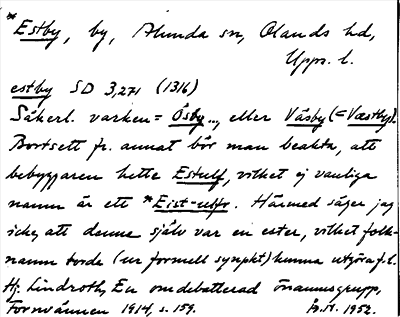 *Estby, by, Alunda sn, Olands hd,
Upps. l.
estby SD 3,271 (1316)
Säkerl. varken = Ösby..., eller Väsby (= Væstby).
Bortsett fr. annat bör man beakta, att
bebyggaren hette Estulf, vilket ej vanliga
namn är ett *Eist-ulfr. Härmed säger jag
icke, att denne själv var en ester, vilket folk-
namn torde (ur formell synpkt) kunna utgöra f.l.
Hj. Lindroth, En omdebatterad önamnsgrupp,
Fornvännen 1914, s. 159. 1952.